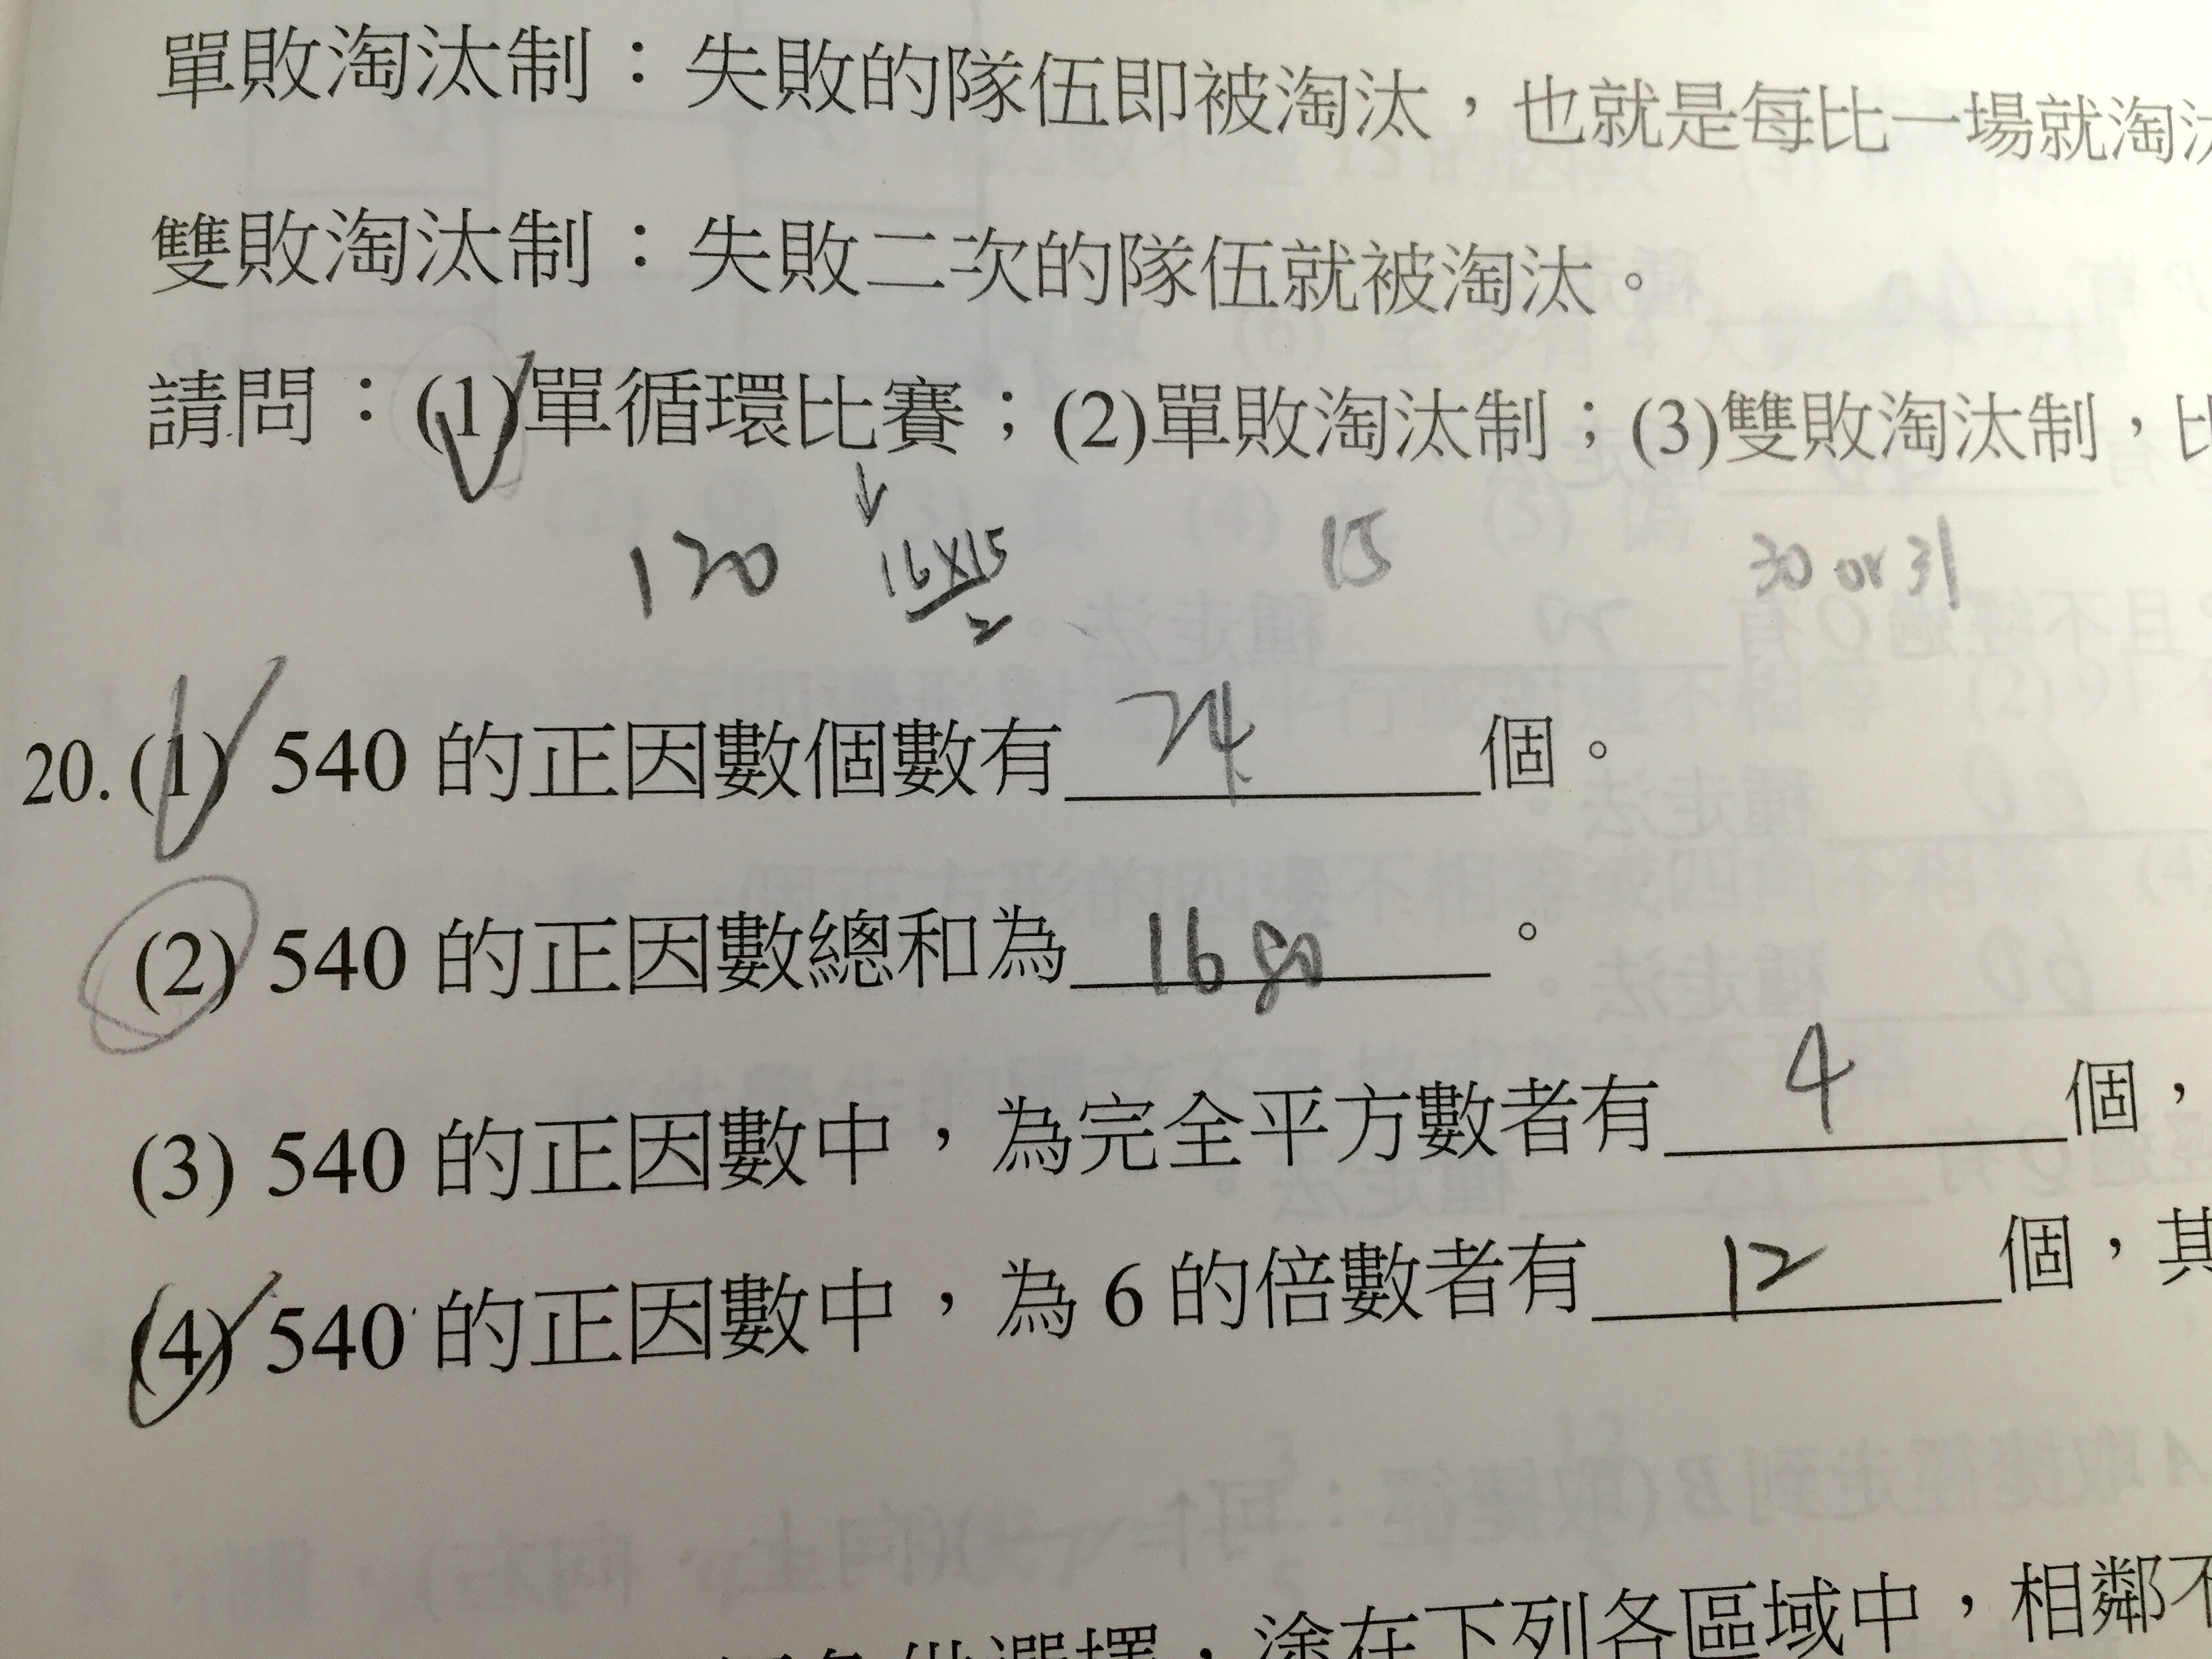 單敗淘汰制：失敗的隊伍即被淘汰，也就是每比一場就淘汰
雙敗淘汰制：失敗二次的隊伍就被淘汰。
請問：(1)單循環比賽；(2)單敗淘汰制；(3)雙敗淘汰制，比
120 16×15/2 15 30 or 31
20. (1) 540 的正因數個數有 24 個。
(2) 540 的正因數總和為 1680 。
(3) 540 的正因數中，為完全平方數者有 4 個，
(4) 540 的正因數中，為 6 的倍數者有 12 個，其
選擇，塗在下列各區域中，相鄰不